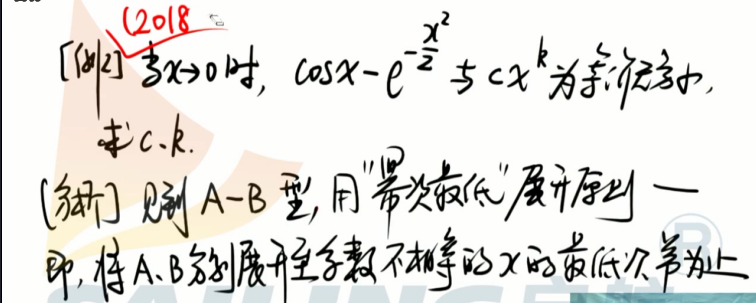 (2018
[例2] 当x→0时, cosx - e^{-\frac{x^2}{2}} 与 cx^k 为等价无穷小,
求 c、k.
[分析] 见到 A-B 型, 用"幂次最低"展开原则 —
即, 将A、B分别展开至系数不相等的x的最低次幂为止